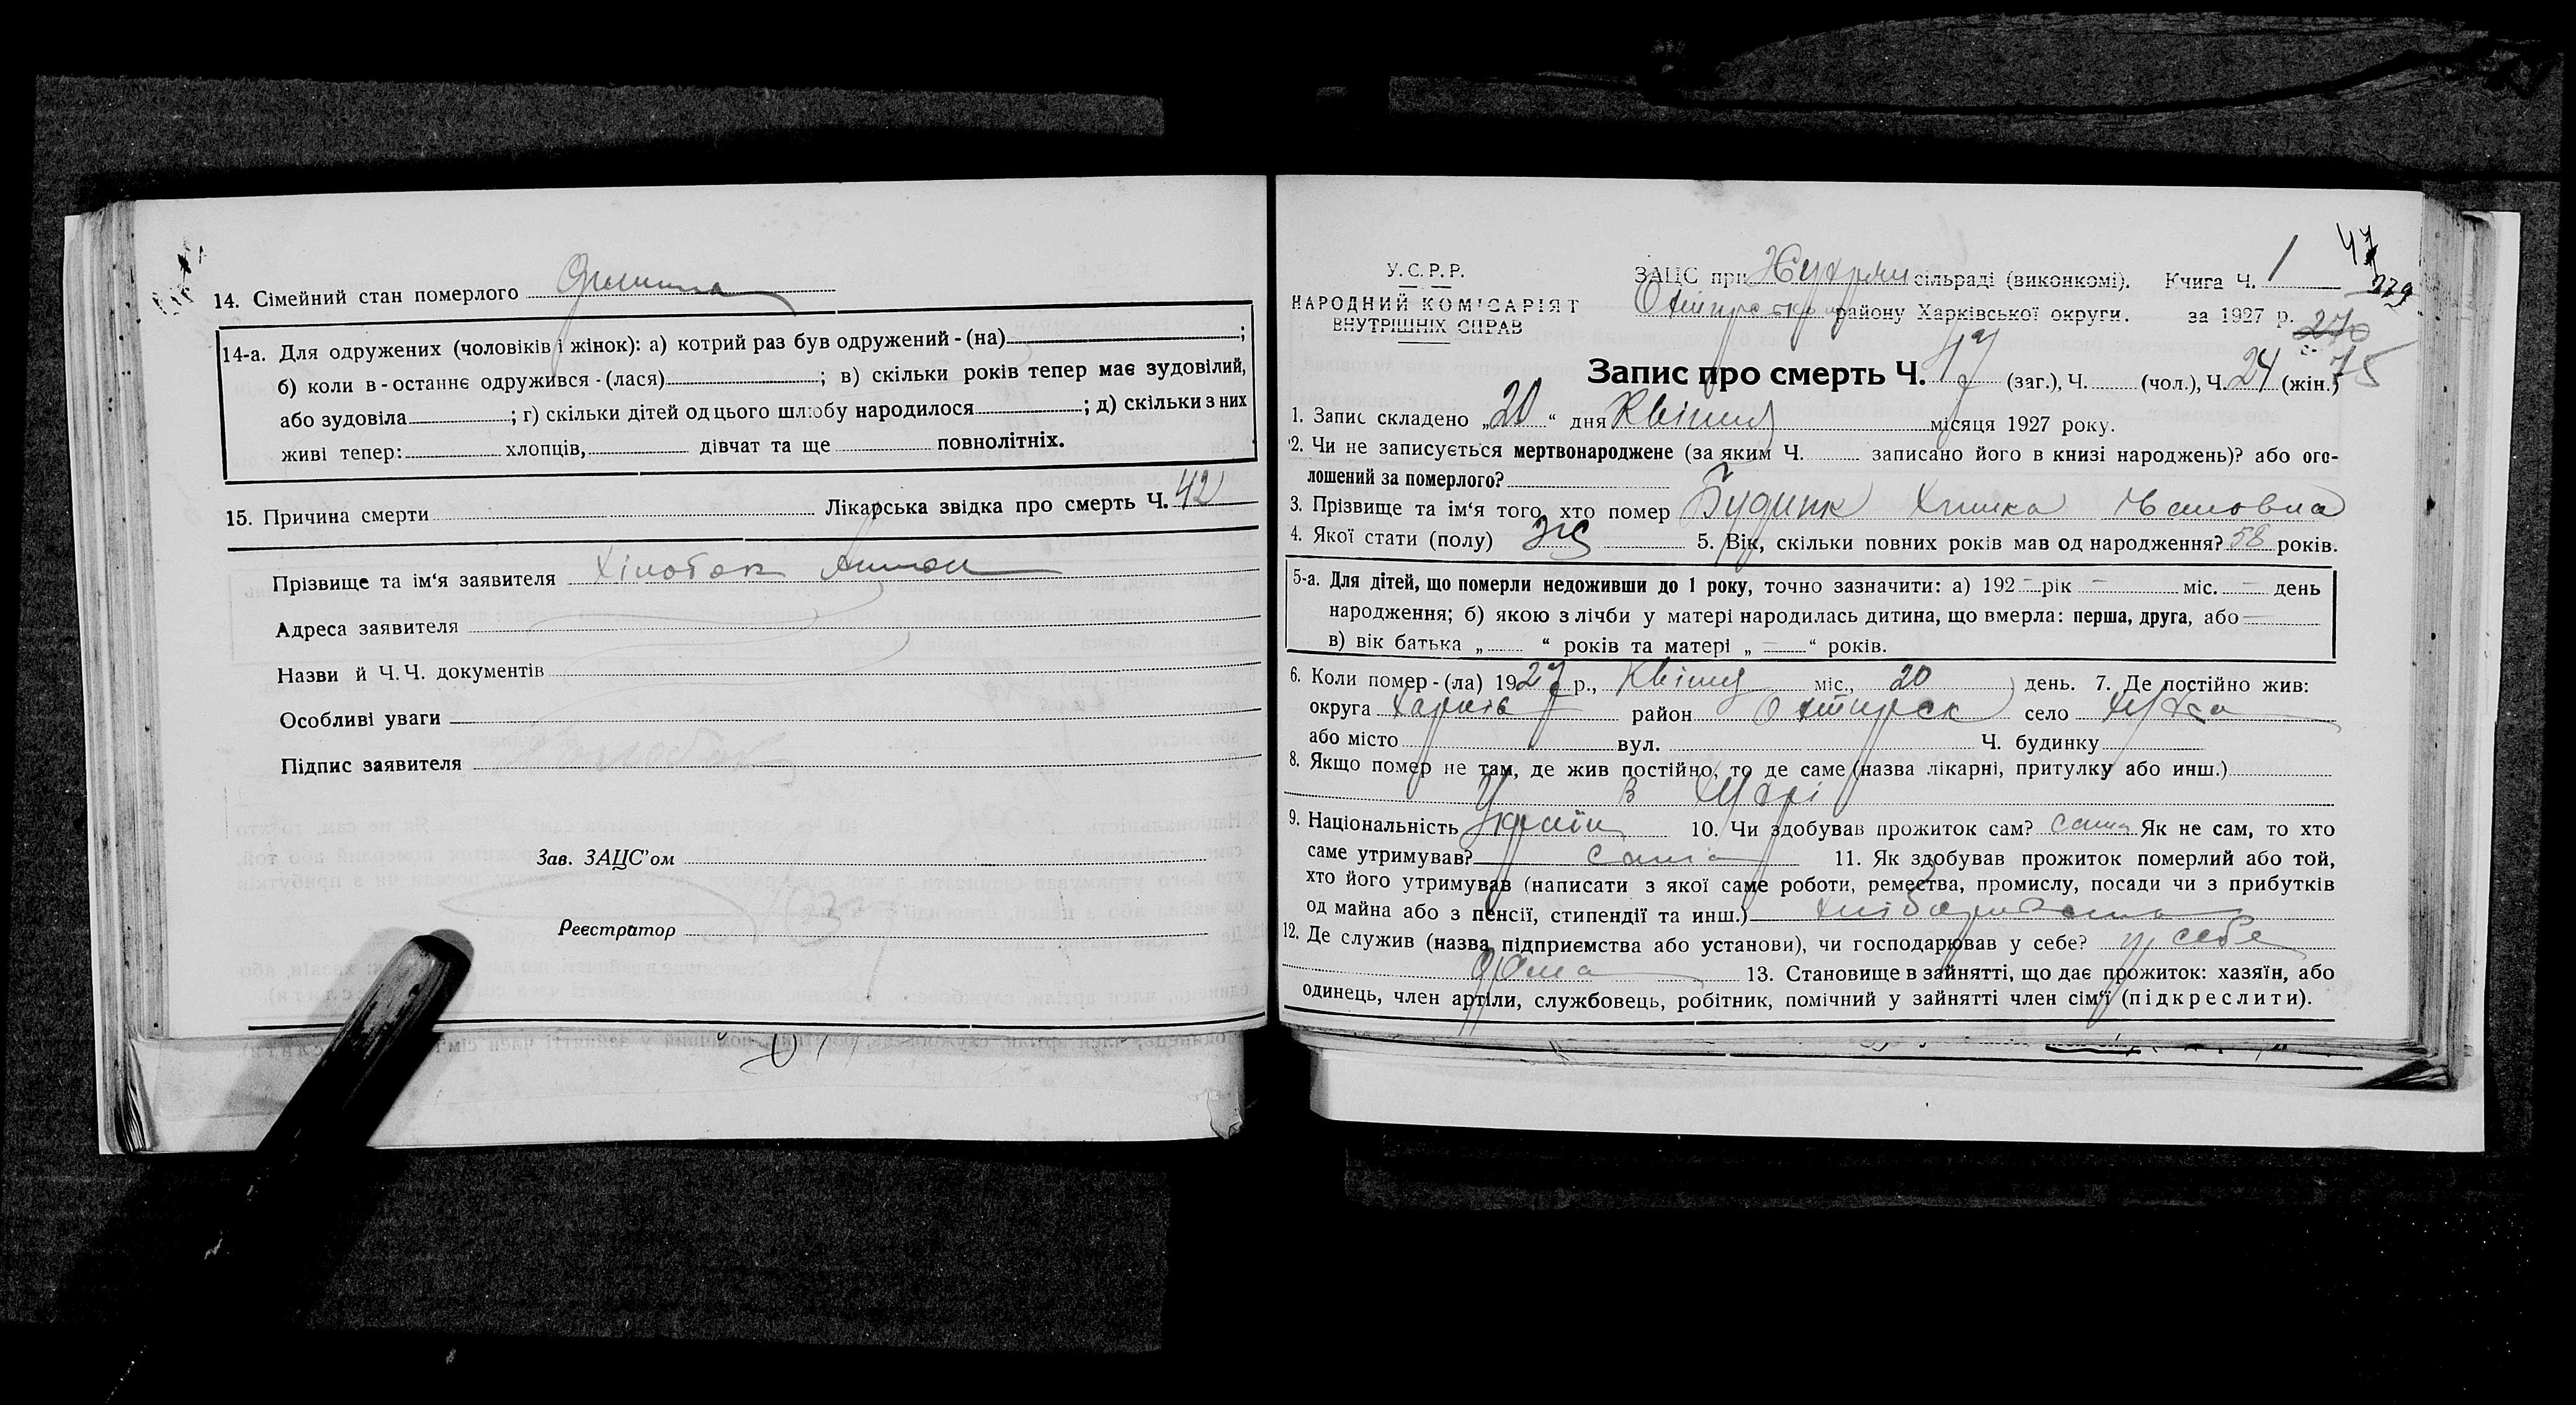 14. Сімейний стан померлого
14-а. Для одружених (чоловіків і жінок): а) котрий раз був одружений - (на) ;
б) коли в - останнє одружився - (лася) ; в) скільки років тепер має зудовілий,
або зудовіла ; г) скільки дітей од цього шлюбу народилося ; д) скільки з них
живі тепер: хлопців, дівчат та ще повнолітніх.
15. Причина смерти Лікарська звідка про смерть Ч. 42
Прізвище та ім'я заявителя Антон
Адреса заявителя
Назви й Ч.Ч. документів
Особливі уваги
Підпис заявителя
Зав. ЗАЦС'ом
Реєстратор
У.С.Р.Р.
НАРОДНИЙ КОМІСАРІЯТ
ВНУТРІШНІХ СПРАВ
ЗАЦС при сільраді (виконкомі). Книга Ч. 1
району Харківської округи. за 1927 р.
47
229
270
75
Запис про смерть Ч. 47 (заг.), Ч. (чол.), Ч. 24 (жін.)
1. Запис складено „20“ дня Квітня місяця 1927 року.
2. Чи не записується мертвонароджене (за яким Ч. записано його в книзі народжень)? або ого-
лошений за померлого?
3. Прізвище та ім'я того, хто помер Івановна
4. Якої стати (полу) Ж 5. Вік, скільки повних років мав од народження? 58 років.
5-а. Для дітей, що померли недоживши до 1 року, точно зазначити: а) 192 – рік – міс. – день
народження; б) якою з лічби у матері народилась дитина, що вмерла: перша, друга, або —
в) вік батька „ “ років та матері „ — “ років.
6. Коли помер - (ла) 1927 р., Квітня міс., 20 день. 7. Де постійно жив:
округа Харків район Охтирск село
або місто вул. Ч. будинку
8. Якщо помер не там, де жив постійно, то де саме (назва лікарні, притулку або инш.)
в
9. Національність Україн 10. Чи здобував прожиток сам? сама Як не сам, то хто
саме утримував? сама 11. Як здобував прожиток померлий або той,
хто його утримував (написати з якої саме роботи, ремества, промислу, посади чи з прибутків
од майна або з пенсії, стипендії та инш.)
12. Де служив (назва підприємства або установи), чи господарював у себе? у себе
дома 13. Становище в зайнятті, що дає прожиток: хазяїн, або
одинець, член артіли, службовець, робітник, помічний у зайнятті член сім'ї (підкреслити).